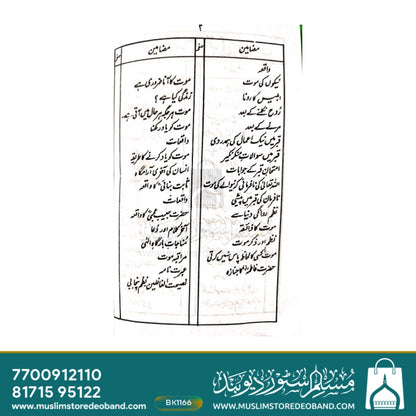 ۲
مضامین
صفحہ
مضامین
صفحہ
واقعہ
نیکوں کی موت
ابلیس کا رونا
روح نکلنے کے بعد
مرنے کے بعد
قبر میں نیک اعمال کی ہمدردی
قبر میں سوالات منکر نکیر
امتحان قبر کے جوابات
اللہ تعالیٰ کی نافرمانی کرنیوالے کی موت
نافرمان کی قبر میں پیشی
نظم روانگی دنیا سے
موت کا ذائقہ
نظم اور ذکر موت
موت کسی کا لحاظ پاس نہیں کرتی
حضرت فاطمہؓ کا جنازہ
موت کا آنا ضروری ہے
زندگی کیا ہے؟
موت ہر جگہ ہر حال میں آتی ہے
موت کو یاد رکھنا
واقعات
موت کو یاد کرنے کا طریقہ
انسان کی آخری آرامگاہ
ثابت بنانی کا واقعہ
واقعات
حضرت حبیب عجمی کا واقعہ
آخر کلام اور دعا
مناجات بارگاہ الٰہی
مراقبہ موت
عبرت نامہ
نصیحت الغافلین نظم پنجابی
7700912110
81715 95122
BK1166
www.muslimstoredeoband.com
مسلم سٹور دیوبند
WWW.MUSLIMSTOREDEOBAND.COM